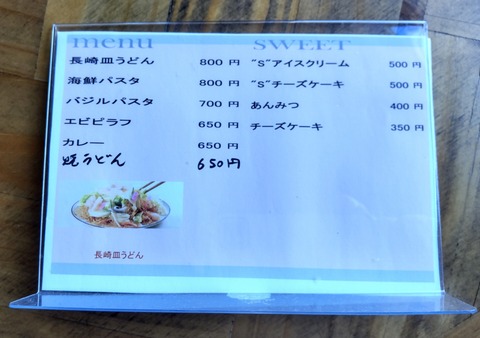 menu
長崎皿うどん 800 円
海鮮パスタ 800 円
バジルパスタ 700 円
エビピラフ 650 円
カレー 650 円
焼うどん 650円
長崎皿うどん
SWEET
"S"アイスクリーム 500 円
"S"チーズケーキ 500 円
あんみつ 400 円
チーズケーキ 350 円